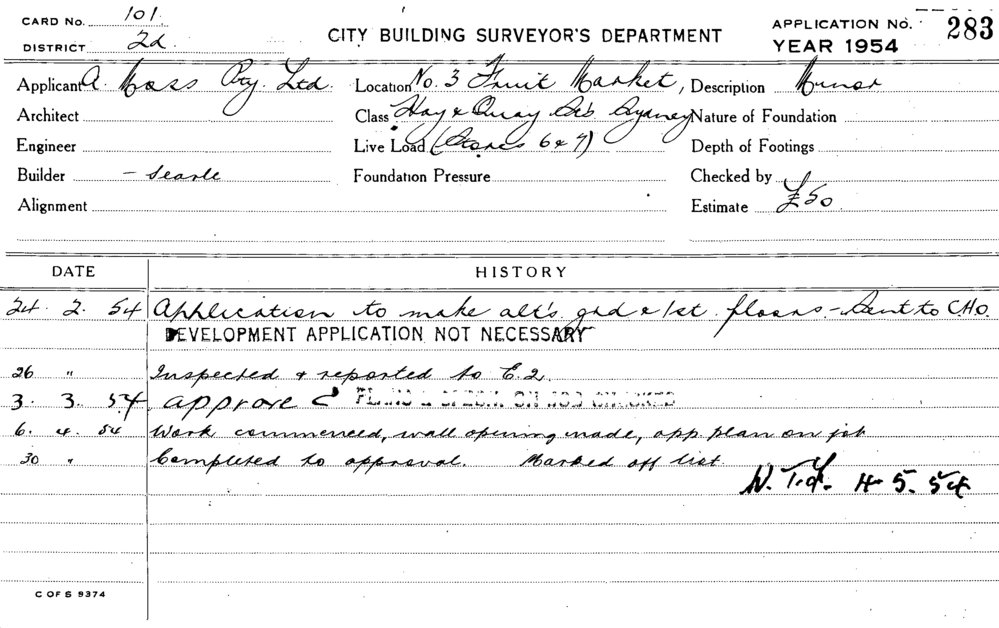 CARD No. 101
DISTRICT 2d
CITY BUILDING SURVEYOR'S DEPARTMENT
APPLICATION No. 283
YEAR 1954
Applicant A. Moss Pty. Ltd. Location No. 3 Fruit Market, Description Minor
Architect Class Hay & Quay Sts Sydney Nature of Foundation
Engineer Live Load (Stores 6 & 7) Depth of Footings
Builder - Searle Foundation Pressure Checked by
Alignment Estimate £50
DATE HISTORY
24. 2. 54 Application to make alt's gnd & 1st floors - Sent to C.H.O.
DEVELOPMENT APPLICATION NOT NECESSARY
26 " Inspected & reported to E.2.
3. 3. 54 approve PLANS & SPECN. ON JOB CHECKED
6. 4. 54 Work commenced, wall opening made, app. plan on job
30 " Completed to approval. Marked off list
4. 5. 54
C OF S 9374